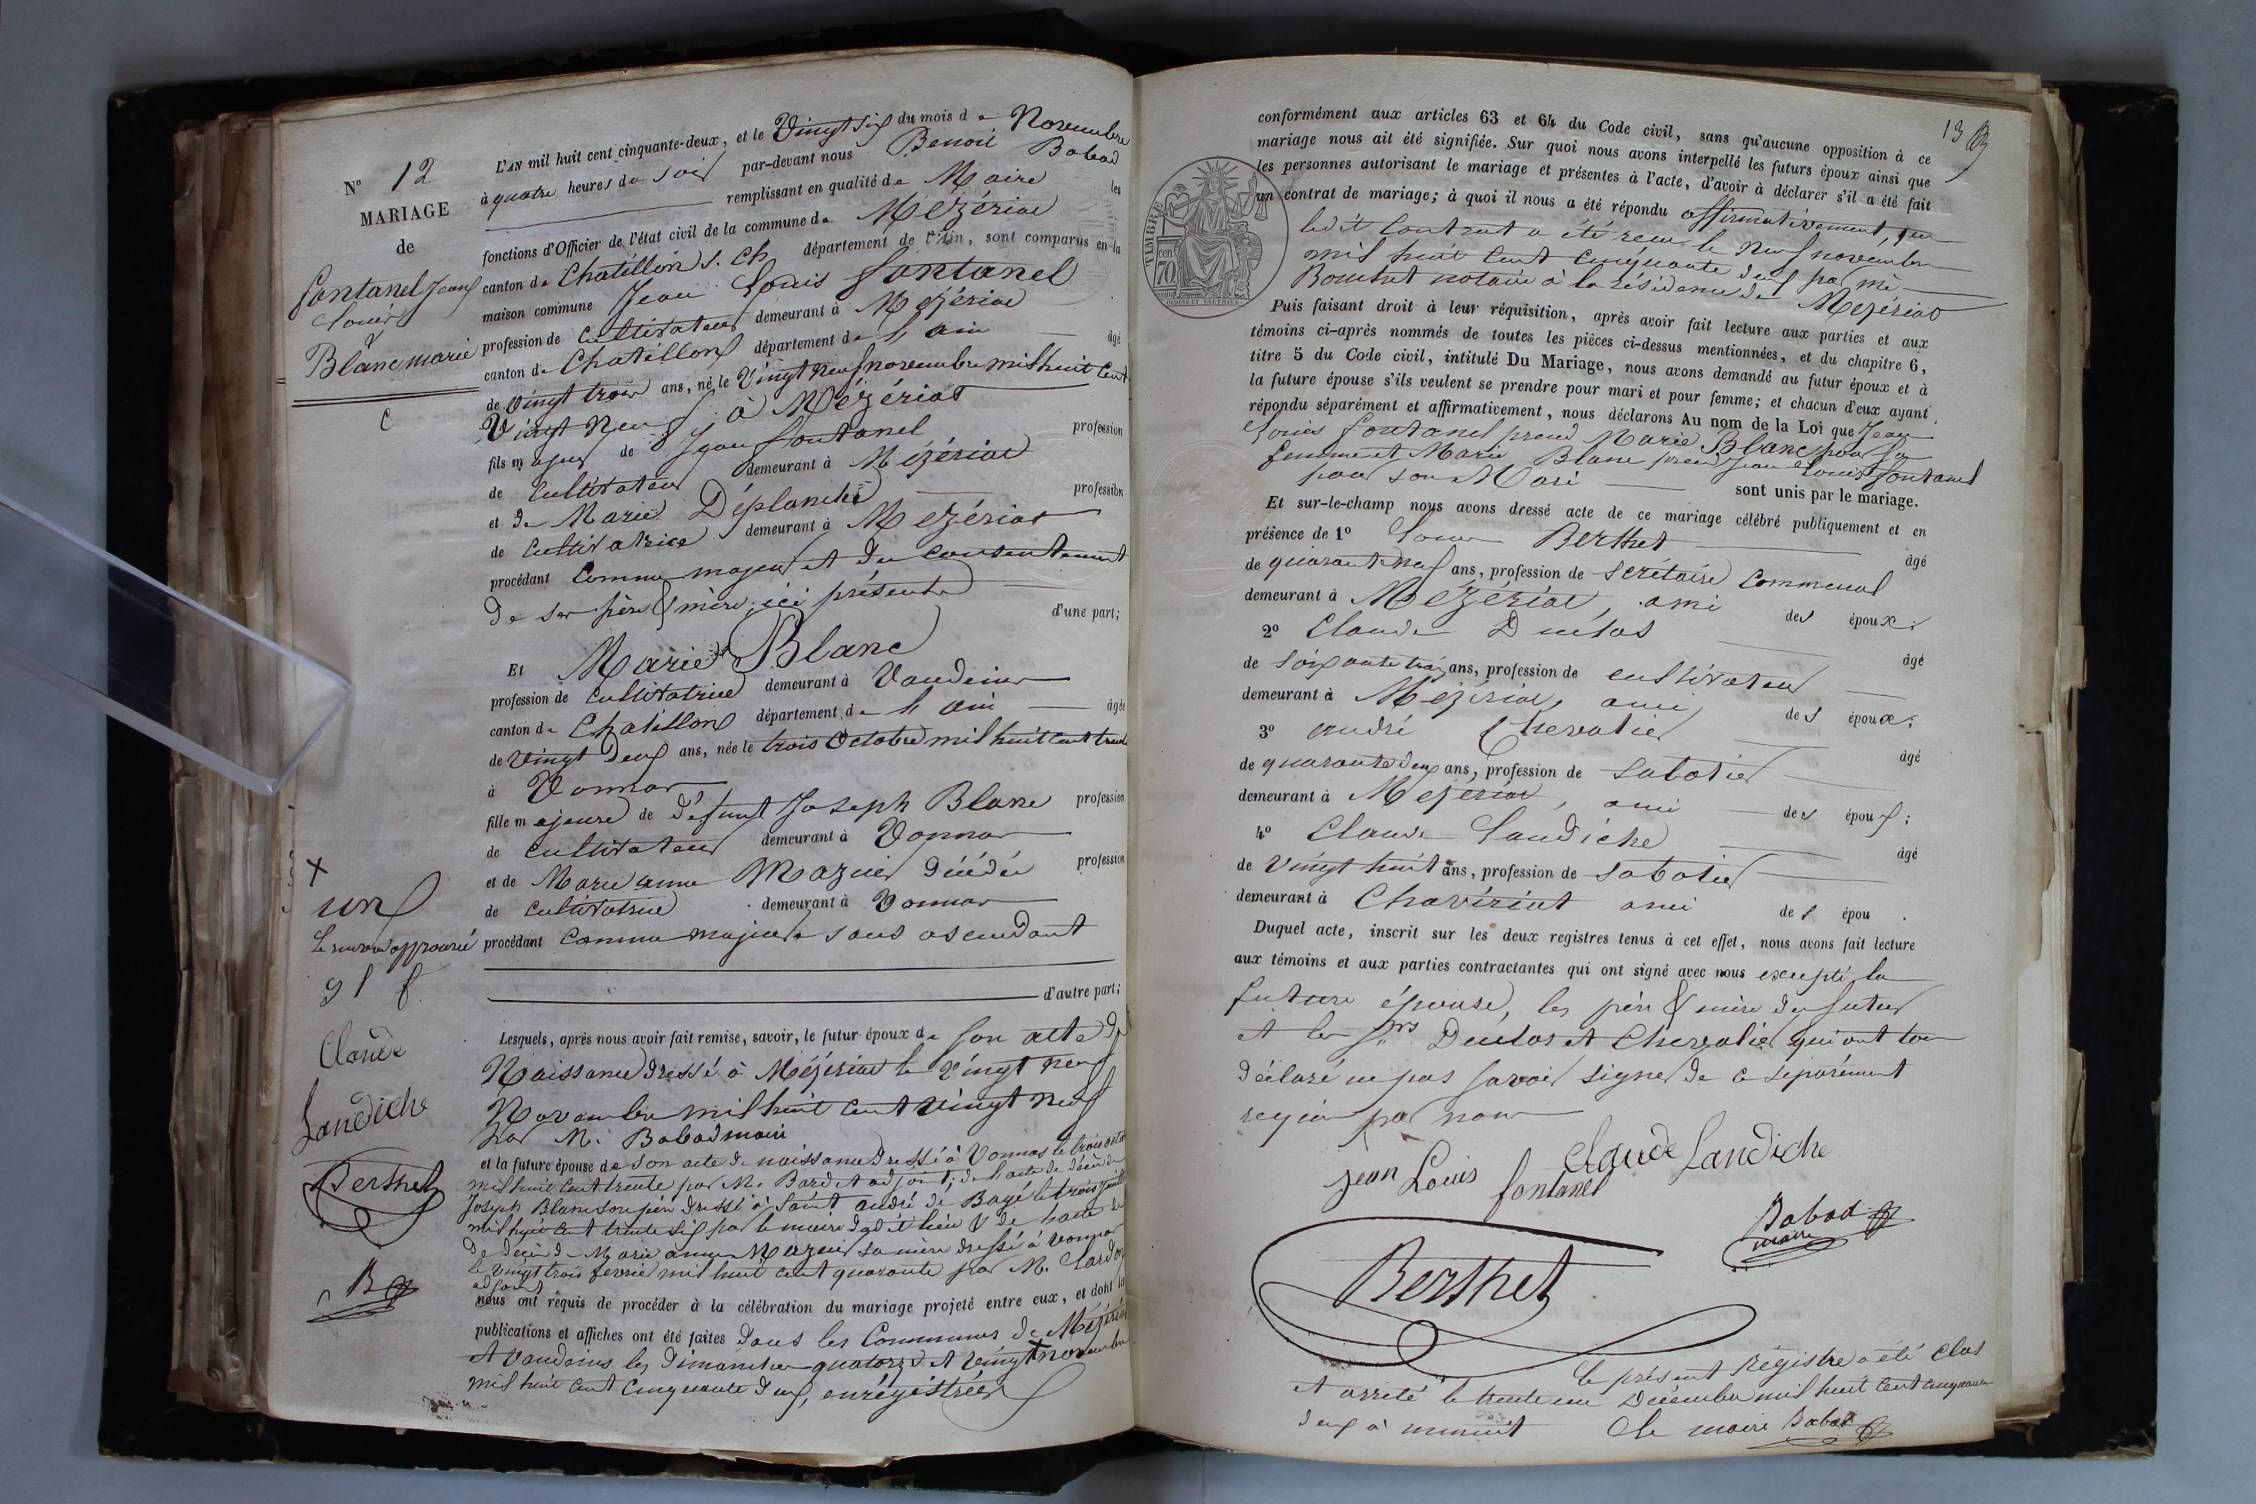 N° 12
MARIAGE
de
fontanel Jean
Louis
&
Blanc marie
C
L'AN mil huit cent cinquante-deux, et le Vingt six du mois de Novembre
à quatre heures du soir par-devant nous Benoit Babad
remplissant en qualité de Maire les
fonctions d'Officier de l'état civil de la commune de Mézériat
canton de Chatillon s. Ch. département de l'Ain, sont comparus en la
maison commune Jean Louis fontanel
profession de cultivateur demeurant à Mézériat
canton de Chatillon département de l'ain âgé
de vingt trois ans, né le Vingt neuf novembre mil huit cent
Vingt neuf à Mézériat
fils majeur de Jean fontanel profession
de Cultivateur demeurant à Mézériat
et de Marie Déplanche profession
de Cultivatrice demeurant à Mézériat
procédant comme majeur et du consentement
de ses père & mère ici présents d'une part;
Et Marie Blanc
profession de cultivatrice demeurant à Vandeins
canton de Chatillon département de l'ain âgée
de Vingt deux ans, née le trois Octobre mil huit cent trente
à Vonnas
fille majeure de défunt Joseph Blanc profession
de cultivateur demeurant à Vonnas
et de Marie anne Mazuir décédée profession
de cultivatrice demeurant à Vonnas
procédant comme majeure sans ascendant
d'autre part;
Lesquels, après nous avoir fait remise, savoir, le futur époux de son acte de
Naissance dressé à Mézériat le vingt neuf
Novembre mil huit cent vingt neuf
par M. Babad maire
et la future épouse de son acte de naissance dressé à Vonnas le trois octobre
mil huit cent trente par M. Bardet adjoint; de l'acte de décès de
Joseph Blanc son père dressé à Saint André de Bagé le trois
mil huit cent trente six par le maire du dit lieu & de l'acte de
de décès de Marie anne Mazuir sa mère dressé à Vonnas
le vingt trois fevrier mil huit cent quarante par M.
adjoint
nous ont requis de procéder à la célébration du mariage projeté entre eux, et dont les
publications et affiches ont été faites dans les Communes de Mézériat
et Vandeins les dimanches quatorze et vingt + novembre
mil huit cent cinquante deux, enrégistrées
+
un
le renvoi approuvé
Claude
Landiche
Berthet
B
13
TIMBRE
70 cent
conformément aux articles 63 et 64 du Code civil, sans qu'aucune opposition à ce
mariage nous ait été signifiée. Sur quoi nous avons interpellé les futurs époux ainsi que
les personnes autorisant le mariage et présentes à l'acte, d'avoir à déclarer s'il a été fait
un contrat de mariage; à quoi il nous a été répondu affirmativement, que
ledit Contrat a été recu le neuf novembre
mil huit cent cinquante deux par me
Bouchet notaire à la résidence de Mézériat
Puis faisant droit à leur réquisition, après avoir fait lecture aux parties et aux
témoins ci-après nommés de toutes les pièces ci-dessus mentionnées, et du chapitre 6,
titre 5 du Code civil, intitulé Du Mariage, nous avons demandé au futur époux et à
la future épouse s'ils veulent se prendre pour mari et pour femme; et chacun d'eux ayant
répondu séparément et affirmativement, nous déclarons Au nom de la Loi que Jean
Louis fontanel prend Marie Blanc pour sa
femme et Marie Blanc prend Jean Louis fontanel
pour son Mari sont unis par le mariage.
Et sur-le-champ nous avons dressé acte de ce mariage célébré publiquement et en
présence de 1° Louis Berthet âgé
de quarante neuf ans, profession de secrétaire communal
demeurant à Mézériat, ami des époux;
2° Claude Duclos âgé
de soixante trois ans, profession de cultivateur
demeurant à Mézériat, ami des époux;
3° andré Chevalier âgé
de quarante deux ans, profession de sabotier
demeurant à Mézériat, ami des époux;
4° Claude Landiche âgé
de vingt huit ans, profession de sabotier
demeurant à Chaveriat ami des épou .
Duquel acte, inscrit sur les deux registres tenus à cet effet, nous avons fait lecture
aux témoins et aux parties contractantes qui ont signé avec nous excepté la
future épouse, les père & mère du futur
et les Srs Duclos et Chevalier qui ont tous
déclaré ne pas savoir signer de ce séparément
requis par nous
jean Louis fontanel
Claude Landiche
Babad
maire
Berthet
le présent Régistre a été clos
et arrété le trente un Décembre mil huit cent cinquante
deux à minuit Le maire Babad